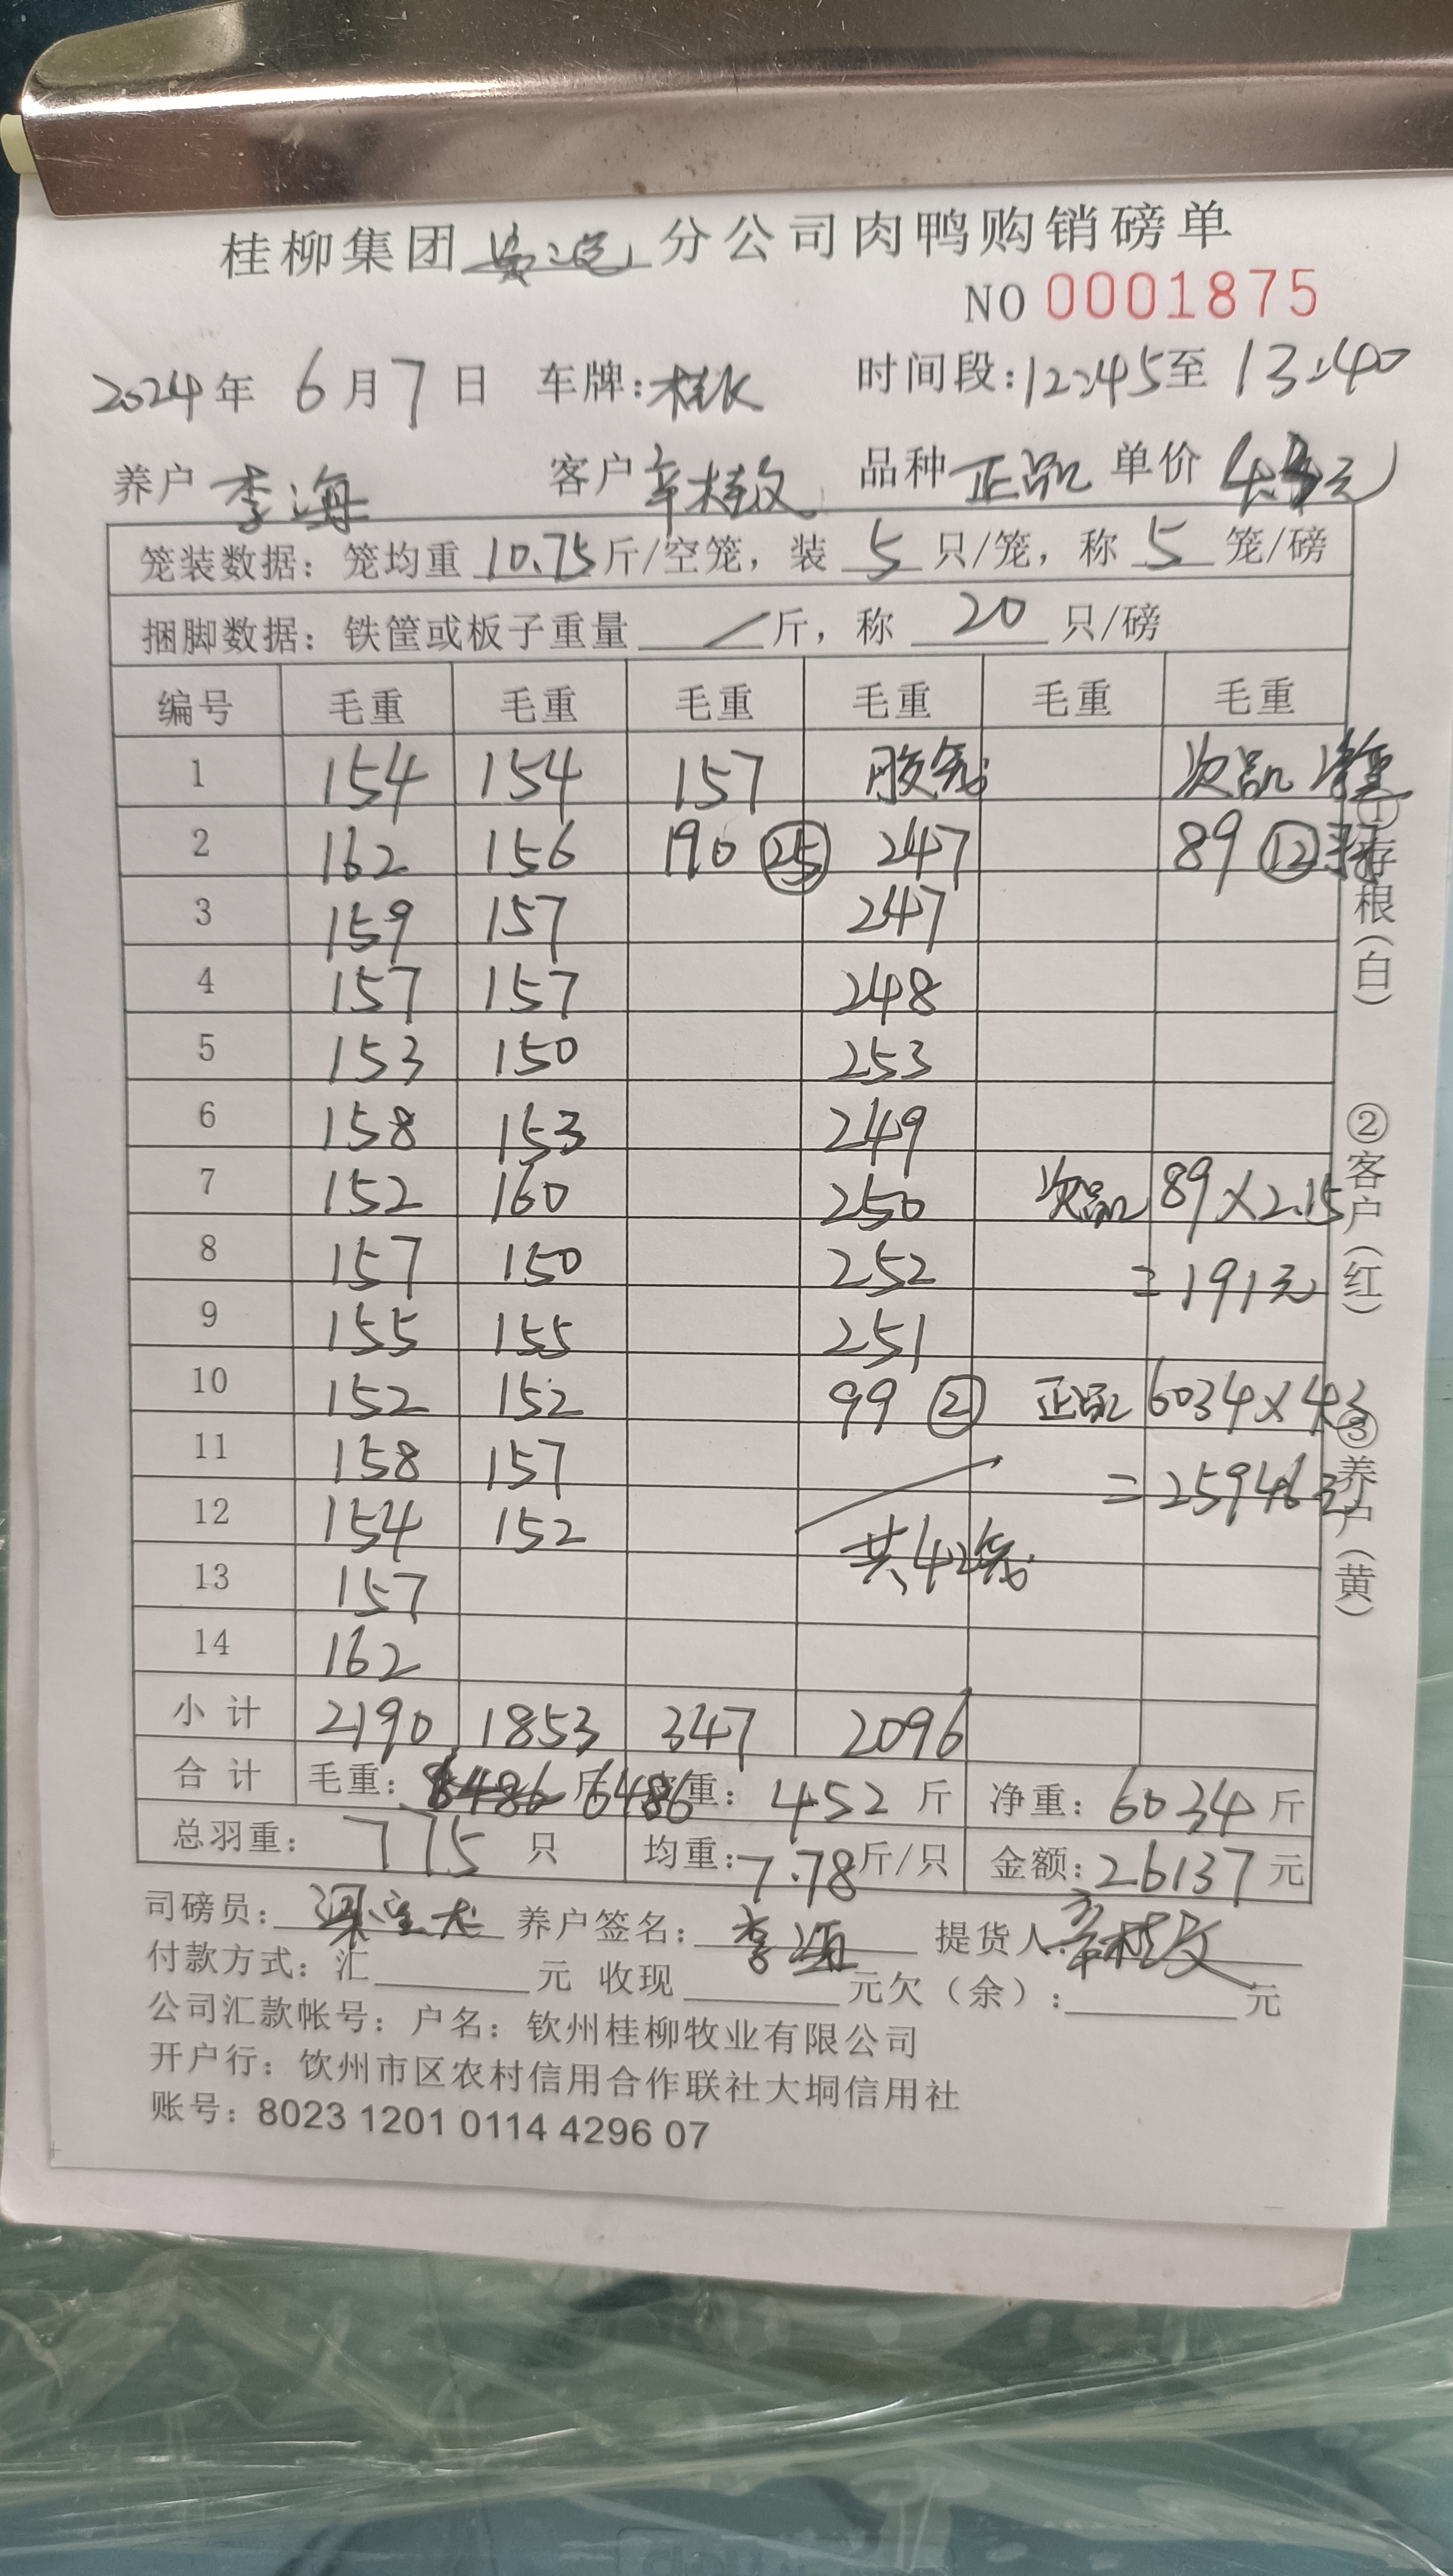 桂柳集团 分公司肉鸭购销磅单
NO 0001875
2024年 6月7日 车牌: 时间段:12:45至 13:40
养户 李海 客户 辛桂文 品种 正品 单价 4.3元
笼装数据：笼均重 10.75 斤/空笼，装 5 只/笼，称 5 笼/磅
捆脚数据：铁筐或板子重量 / 斤，称 20 只/磅
编号 毛重 毛重 毛重 毛重 毛重 毛重
1 154 154 157 胶笼 次品 净重
2 162 156 190 ㉕ 247 89 ⑫
3 159 157 247
4 157 157 248
5 153 150 253
6 158 153 249
7 152 160 250 次品 89×2.15
8 157 150 252 =191元
9 155 155 251
10 152 152 99 ② 正品 6034×4.3
11 158 157 =25946元
12 154 152 共42笼
13 157
14 162
小计 2190 1853 347 2096
合计 毛重: 6486 斤 6486 重: 452 斤 净重: 6034 斤
总羽重: 775 只 均重:7.78斤/只 金额:26137元
司磅员: 养户签名: 李海 提货人 辛桂文
付款方式: 汇 元 收现 元欠（余）: 元
公司汇款帐号: 户名: 钦州桂柳牧业有限公司
开户行: 饮州市区农村信用合作联社大垌信用社
账号: 8023 1201 0114 4296 07
①存根（白）
②客户（红）
③养户（黄）